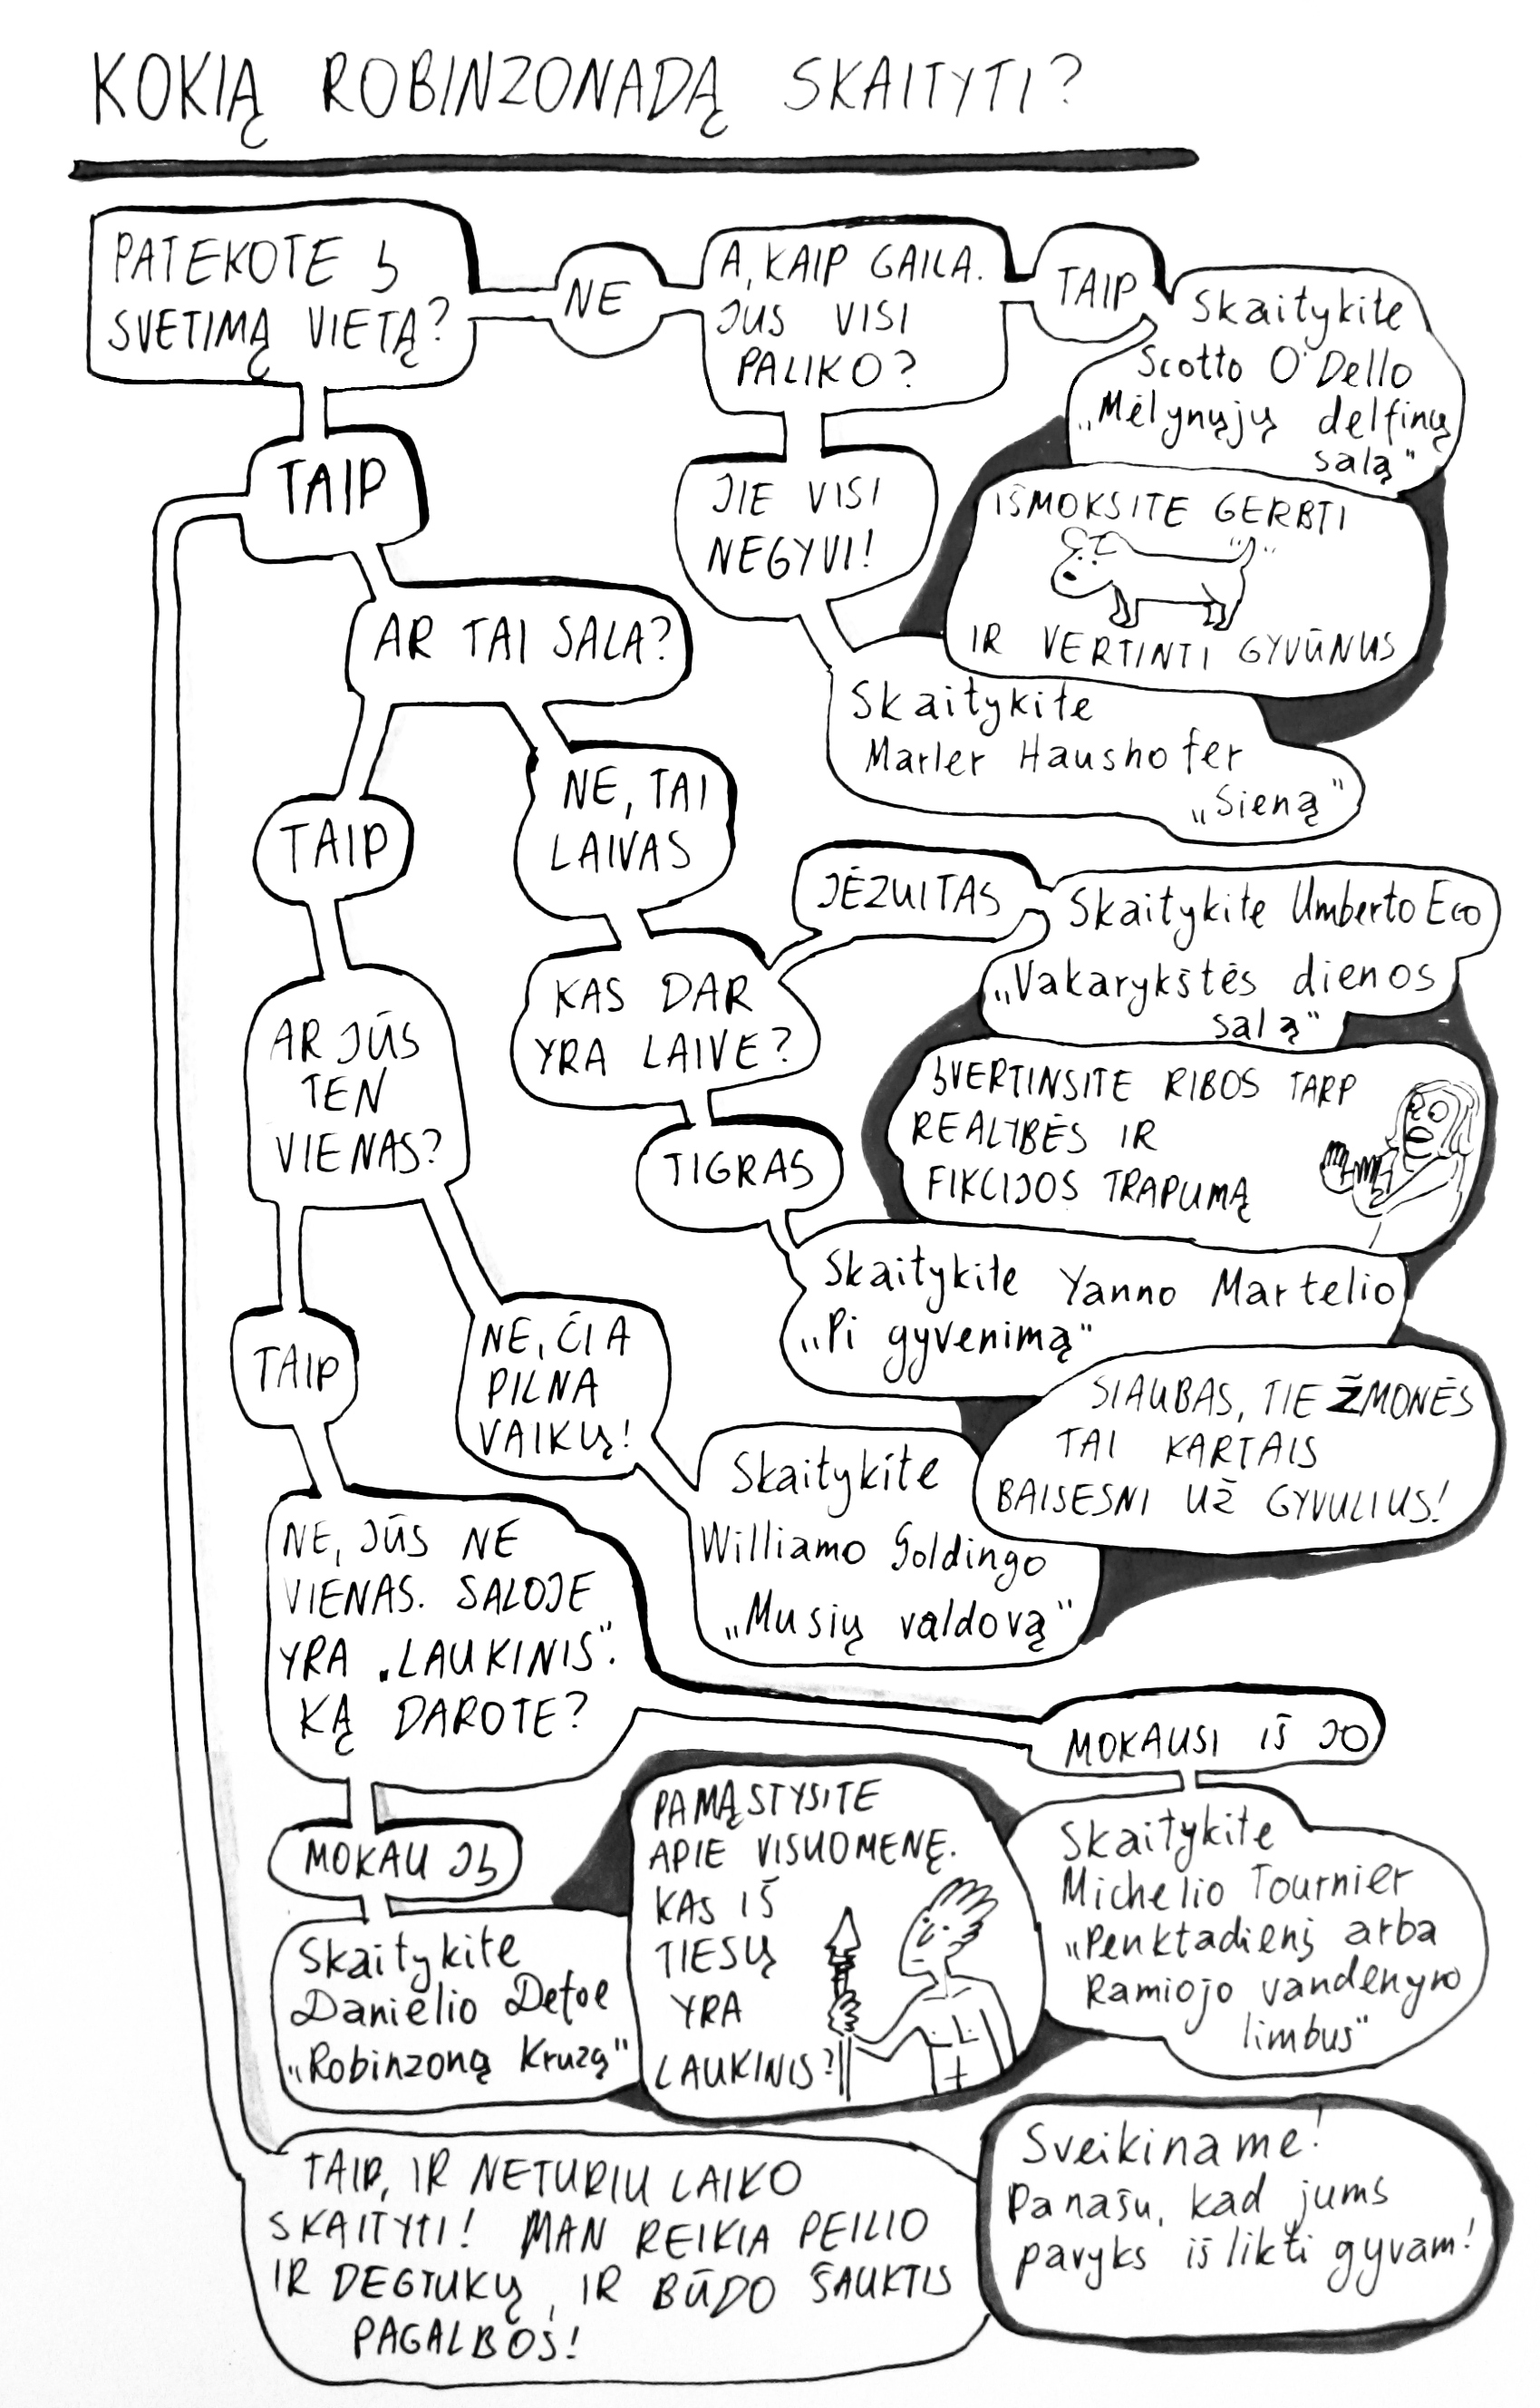 KOKIĄ ROBINZONADĄ SKAITYTI?
PATEKOTE Į
SVETIMĄ VIETĄ?
NE
A, KAIP GAILA.
JUS VISI
PALIKO?
TAIP
Skaitykite
Scotto O'Dello
„Mėlynųjų delfinų
salą"
IŠMOKSITE GERBTI
IR VERTINTI GYVŪNUS
JIE VISI
NEGYVI!
Skaitykite
Marler Haushofer
„Sieną"
TAIP
AR TAI SALA?
NE, TAI
LAIVAS
KAS DAR
YRA LAIVE?
JĖZUITAS
Skaitykite Umberto Eco
„Vakarykštės dienos
salą"
ĮVERTINSITE RIBOS TARP
REALYBĖS IR
FIKCIJOS TRAPUMĄ
TIGRAS
Skaitykite Yanno Martelio
„Pi gyvenimą"
TAIP
AR JŪS
TEN
VIENAS?
NE, ČIA
PILNA
VAIKŲ!
Skaitykite
Williamo Goldingo
„Musių valdovą"
SIAUBAS, TIE ŽMONĖS
TAI KARTAIS
BAISESNI UŽ GYVULIUS!
TAIP
NE, JŪS NE
VIENAS. SALOJE
YRA „LAUKINIS".
KĄ DAROTE?
MOKAUSI IŠ JO
Skaitykite
Michelio Tournier
„Penktadienį arba
Ramiojo vandenyno
limbus"
MOKAU JĮ
Skaitykite
Danielio Defoe
„Robinzoną Kruzą"
PAMĄSTYSITE
APIE VISUOMENĘ.
KAS IŠ
TIESŲ
YRA
LAUKINIS?
TAIP, IR NETURIU LAIKO
SKAITYTI! MAN REIKIA PEILIO
IR DEGTUKŲ, IR BŪDO ŠAUKTIS
PAGALBOS!
Sveikiname!
Panašu, kad jums
pavyks išlikti gyvam!